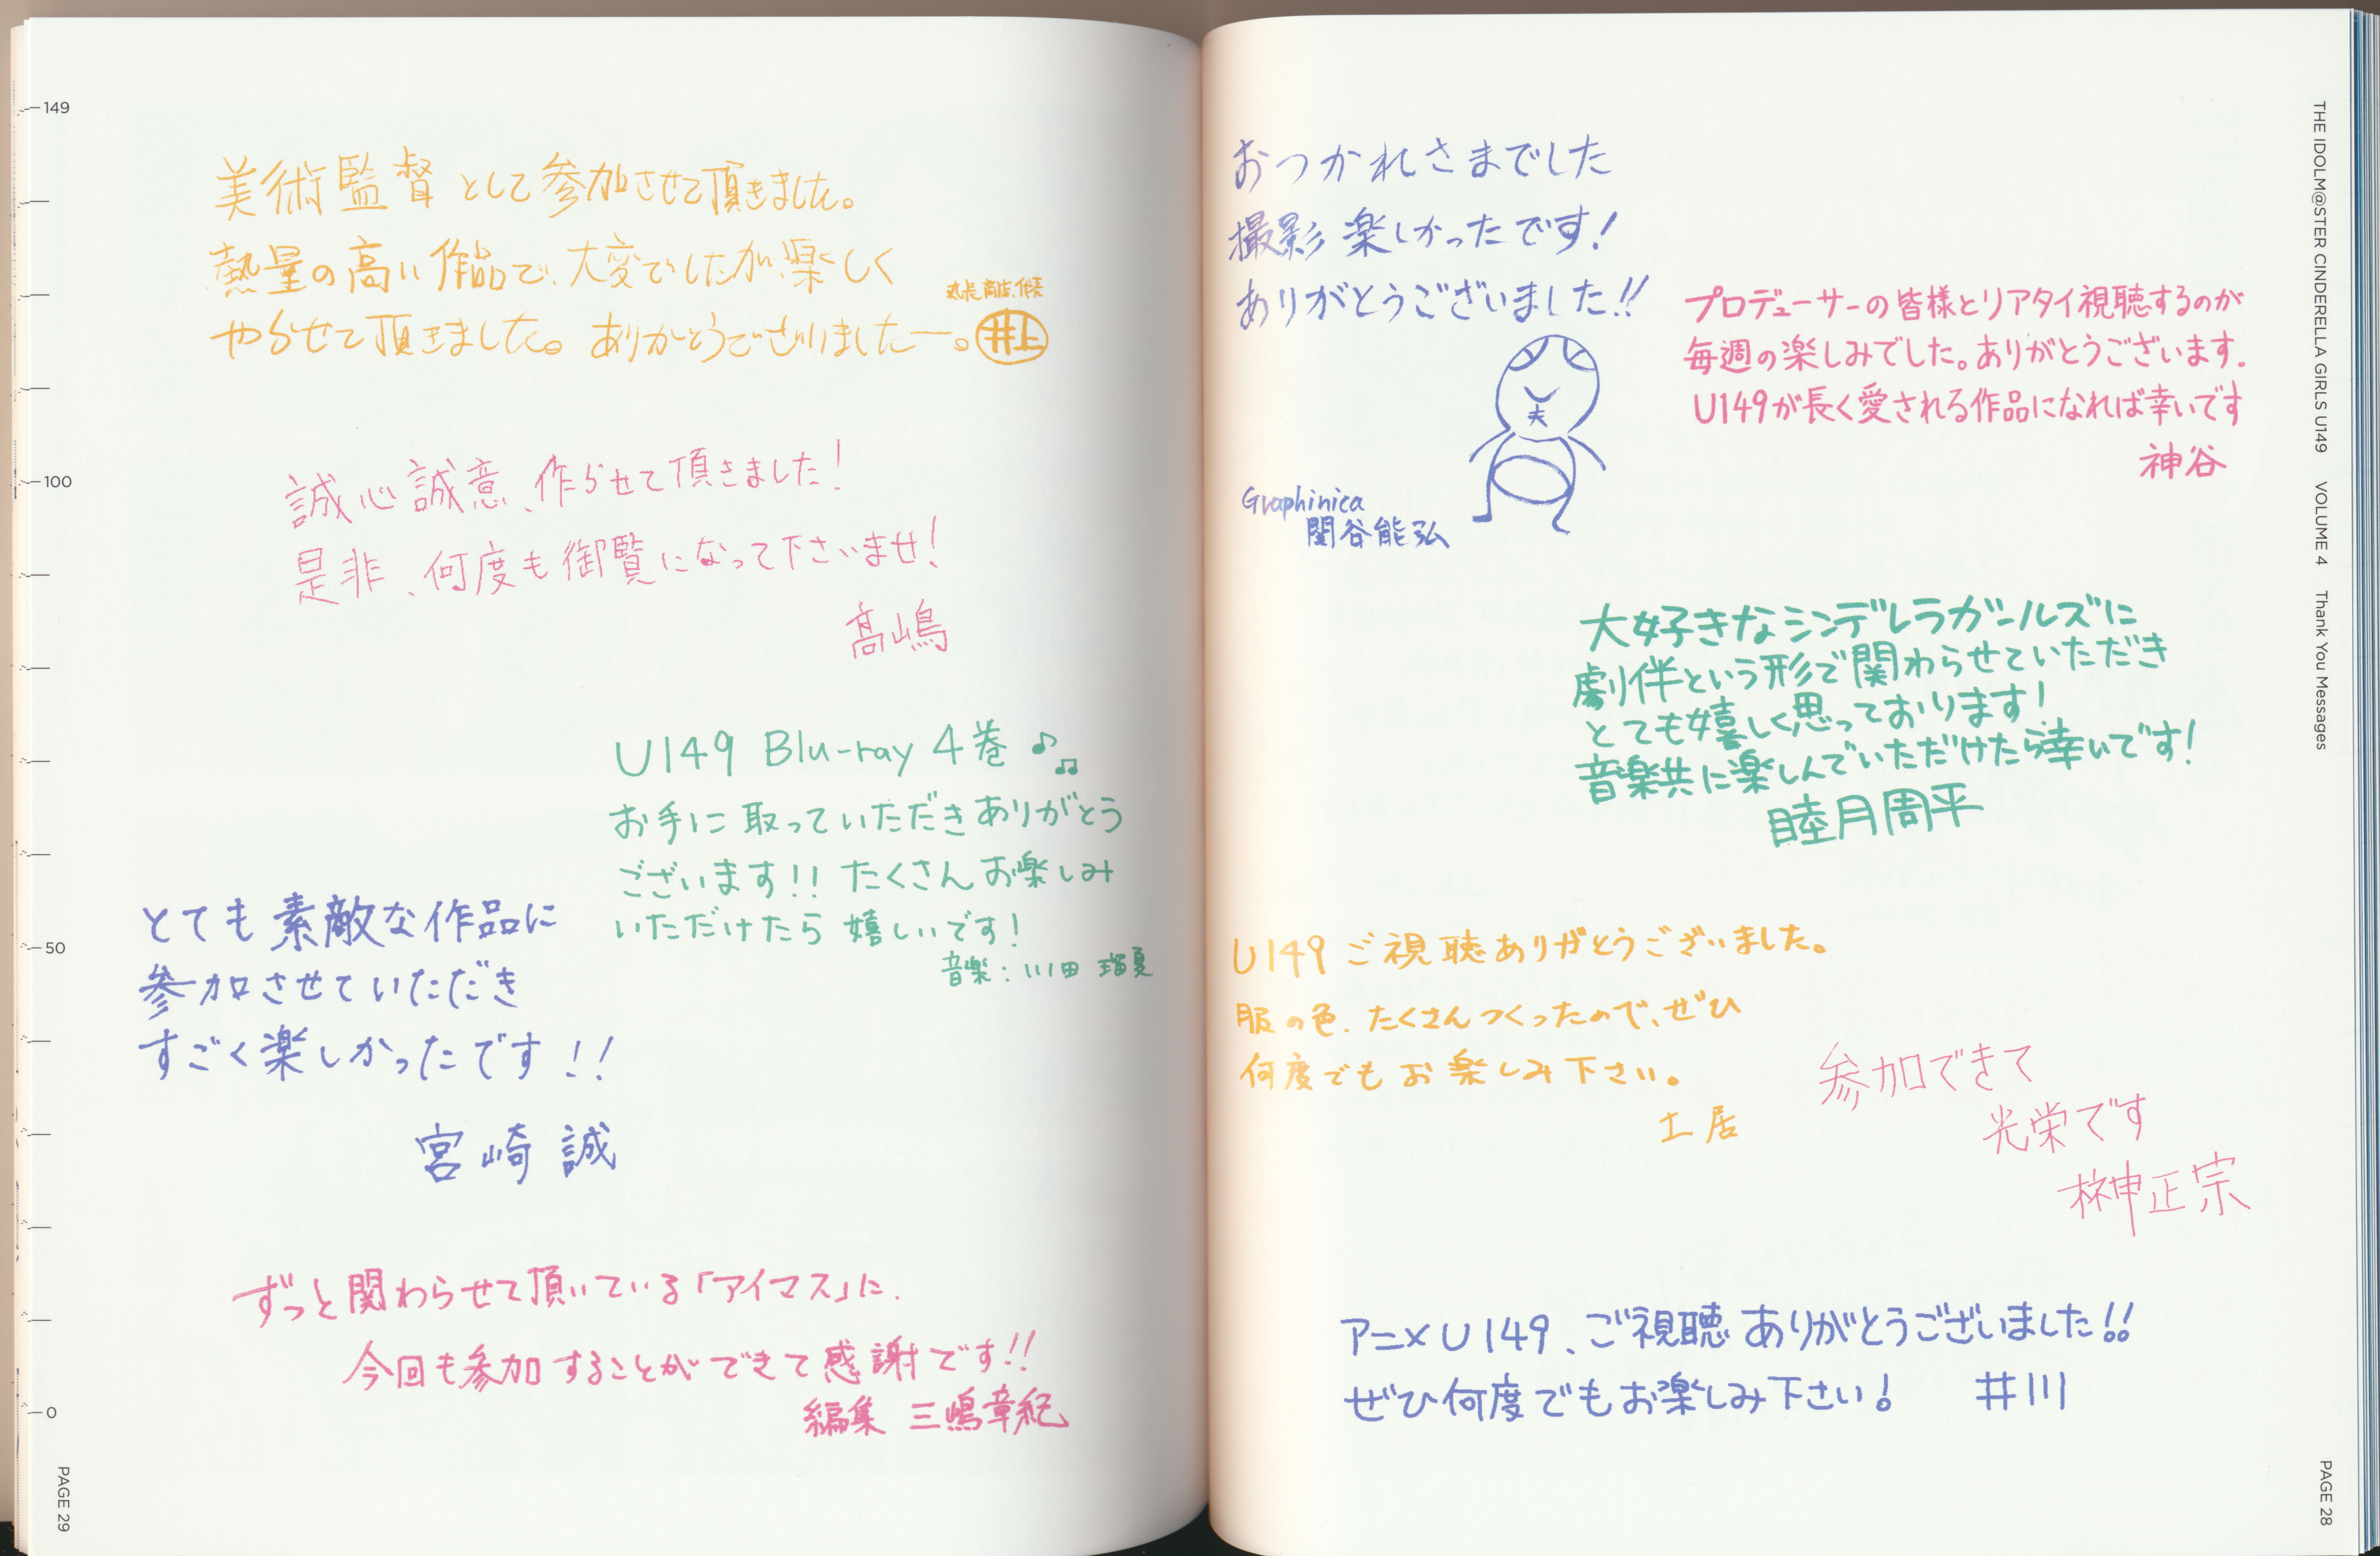 THE IDOLM@STER CINDERELLA GIRLS U149 VOLUME 4 Thank You Messages
おつかれさまでした
撮影楽しかったです!
ありがとうございました!!
夫
Graphinica
関谷能弘
プロデューサーの皆様とリアタイ視聴するのが
毎週の楽しみでした。ありがとうございます.
U149が長く愛される作品になれば幸いです
神谷
大好きなシンデレラガールズに
劇伴という形で関わらせていただき
とても嬉しく思っております!
音楽共に楽しんでいただけたら幸いです!
睦月周平
U149 ご視聴ありがとうございました。
服の色、たくさんつくったので、ぜひ
何度でもお楽しみ下さい。
土居
参加できて
光栄です
榊正宗
アニメU149、ご視聴ありがとうございました!!
ぜひ何度でもお楽しみ下さい! 井川
PAGE 28
149
100
50
0
美術監督として参加させて頂きました。
熱量の高い作品で、大変でしたが楽しく
やらせて頂きました。ありがとうございましたー。
井上
誠心誠意、作らせて頂きました!
是非、何度も御覧になって下さいませ!
髙嶋
U149 Blu-ray 4巻♪♫
お手に取っていただきありがとう
ございます!! たくさんお楽しみ
いただけたら嬉しいです!
音楽:川田 瑠夏
とても素敵な作品に
参加させていただき
すごく楽しかったです!!
宮崎 誠
ずっと関わらせて頂いている「アイマス」に、
今回も参加することができて感謝です!!
編集 三嶋章紀
PAGE 29